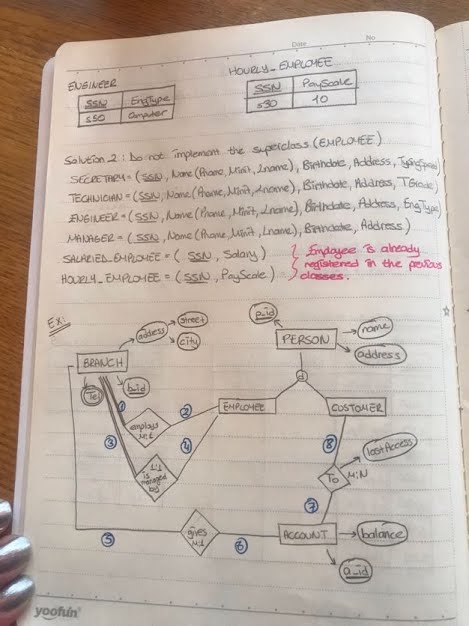 Date
No
ENGINEER
HOURLY_EMPLOYEE
SSN EngType
550 Computer
SSN PayScale
530 10
Solution 2: Do not implement the superclass (EMPLOYEE)
SECRETARY = (SSN, Name(Fname, Minit, Lname), Birthdate, Address, TypingSpeed)
TECHNICIAN = (SSN, Name(Fname, Minit, Lname), Birthdate, Address, TGrade)
ENGINEER = (SSN, Name(Fname, Minit, Lname), Birthdate, Address, EngType)
MANAGER = (SSN, Name(Fname, Minit, Lname), Birthdate, Address)
SALARIED_EMPLOYEE = (SSN, Salary)
HOURLY_EMPLOYEE = (SSN, PayScale)
Employee is already
registered in the previous
classes.
Ex:
address
street
city
BRANCH
Tel
b_id
p_id
PERSON
name
address
d
EMPLOYEE
CUSTOMER
1
2
employs
N:1
3
4
1:1
is
managed
by
8
lastAccess
To
M:N
7
5
gives
M:1
6
ACCOUNT
balance
a_id
yoofun